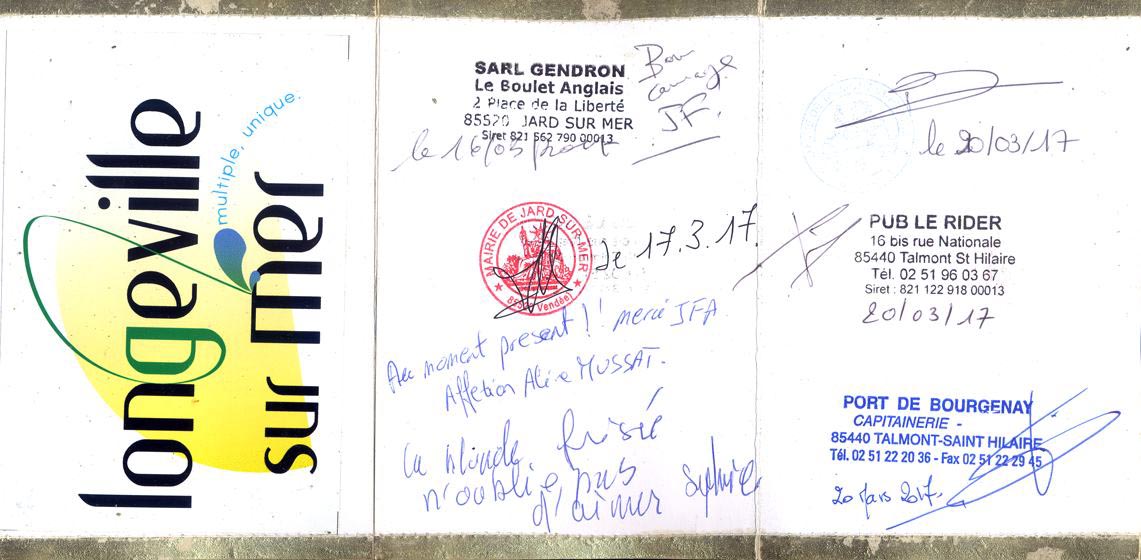 longeville
sur mer
multiple, unique.
SARL GENDRON
Le Boulet Anglais
2 Place de la Liberté
85520 JARD SUR MER
Siret 821 562 790 00013
Bon
courage
JF.
le 16/03/2017
MAIRIE DE JARD-SUR-MER
(Vendée)
le 17.3.17.
Au moment présent !! merci JFA
Affection Aline MUSSAT.
La blonde frisée
n'oublie pas
d'aimer Sylvie
le 20/03/17
PUB LE RIDER
16 bis rue Nationale
85440 Talmont St Hilaire
Tél. 02 51 96 03 67
Siret : 821 122 918 00013
20/03/17
PORT DE BOURGENAY
CAPITAINERIE -
85440 TALMONT-SAINT HILAIRE
Tél. 02 51 22 20 36 - Fax 02 51 22 29 45
20 Mars 2017.